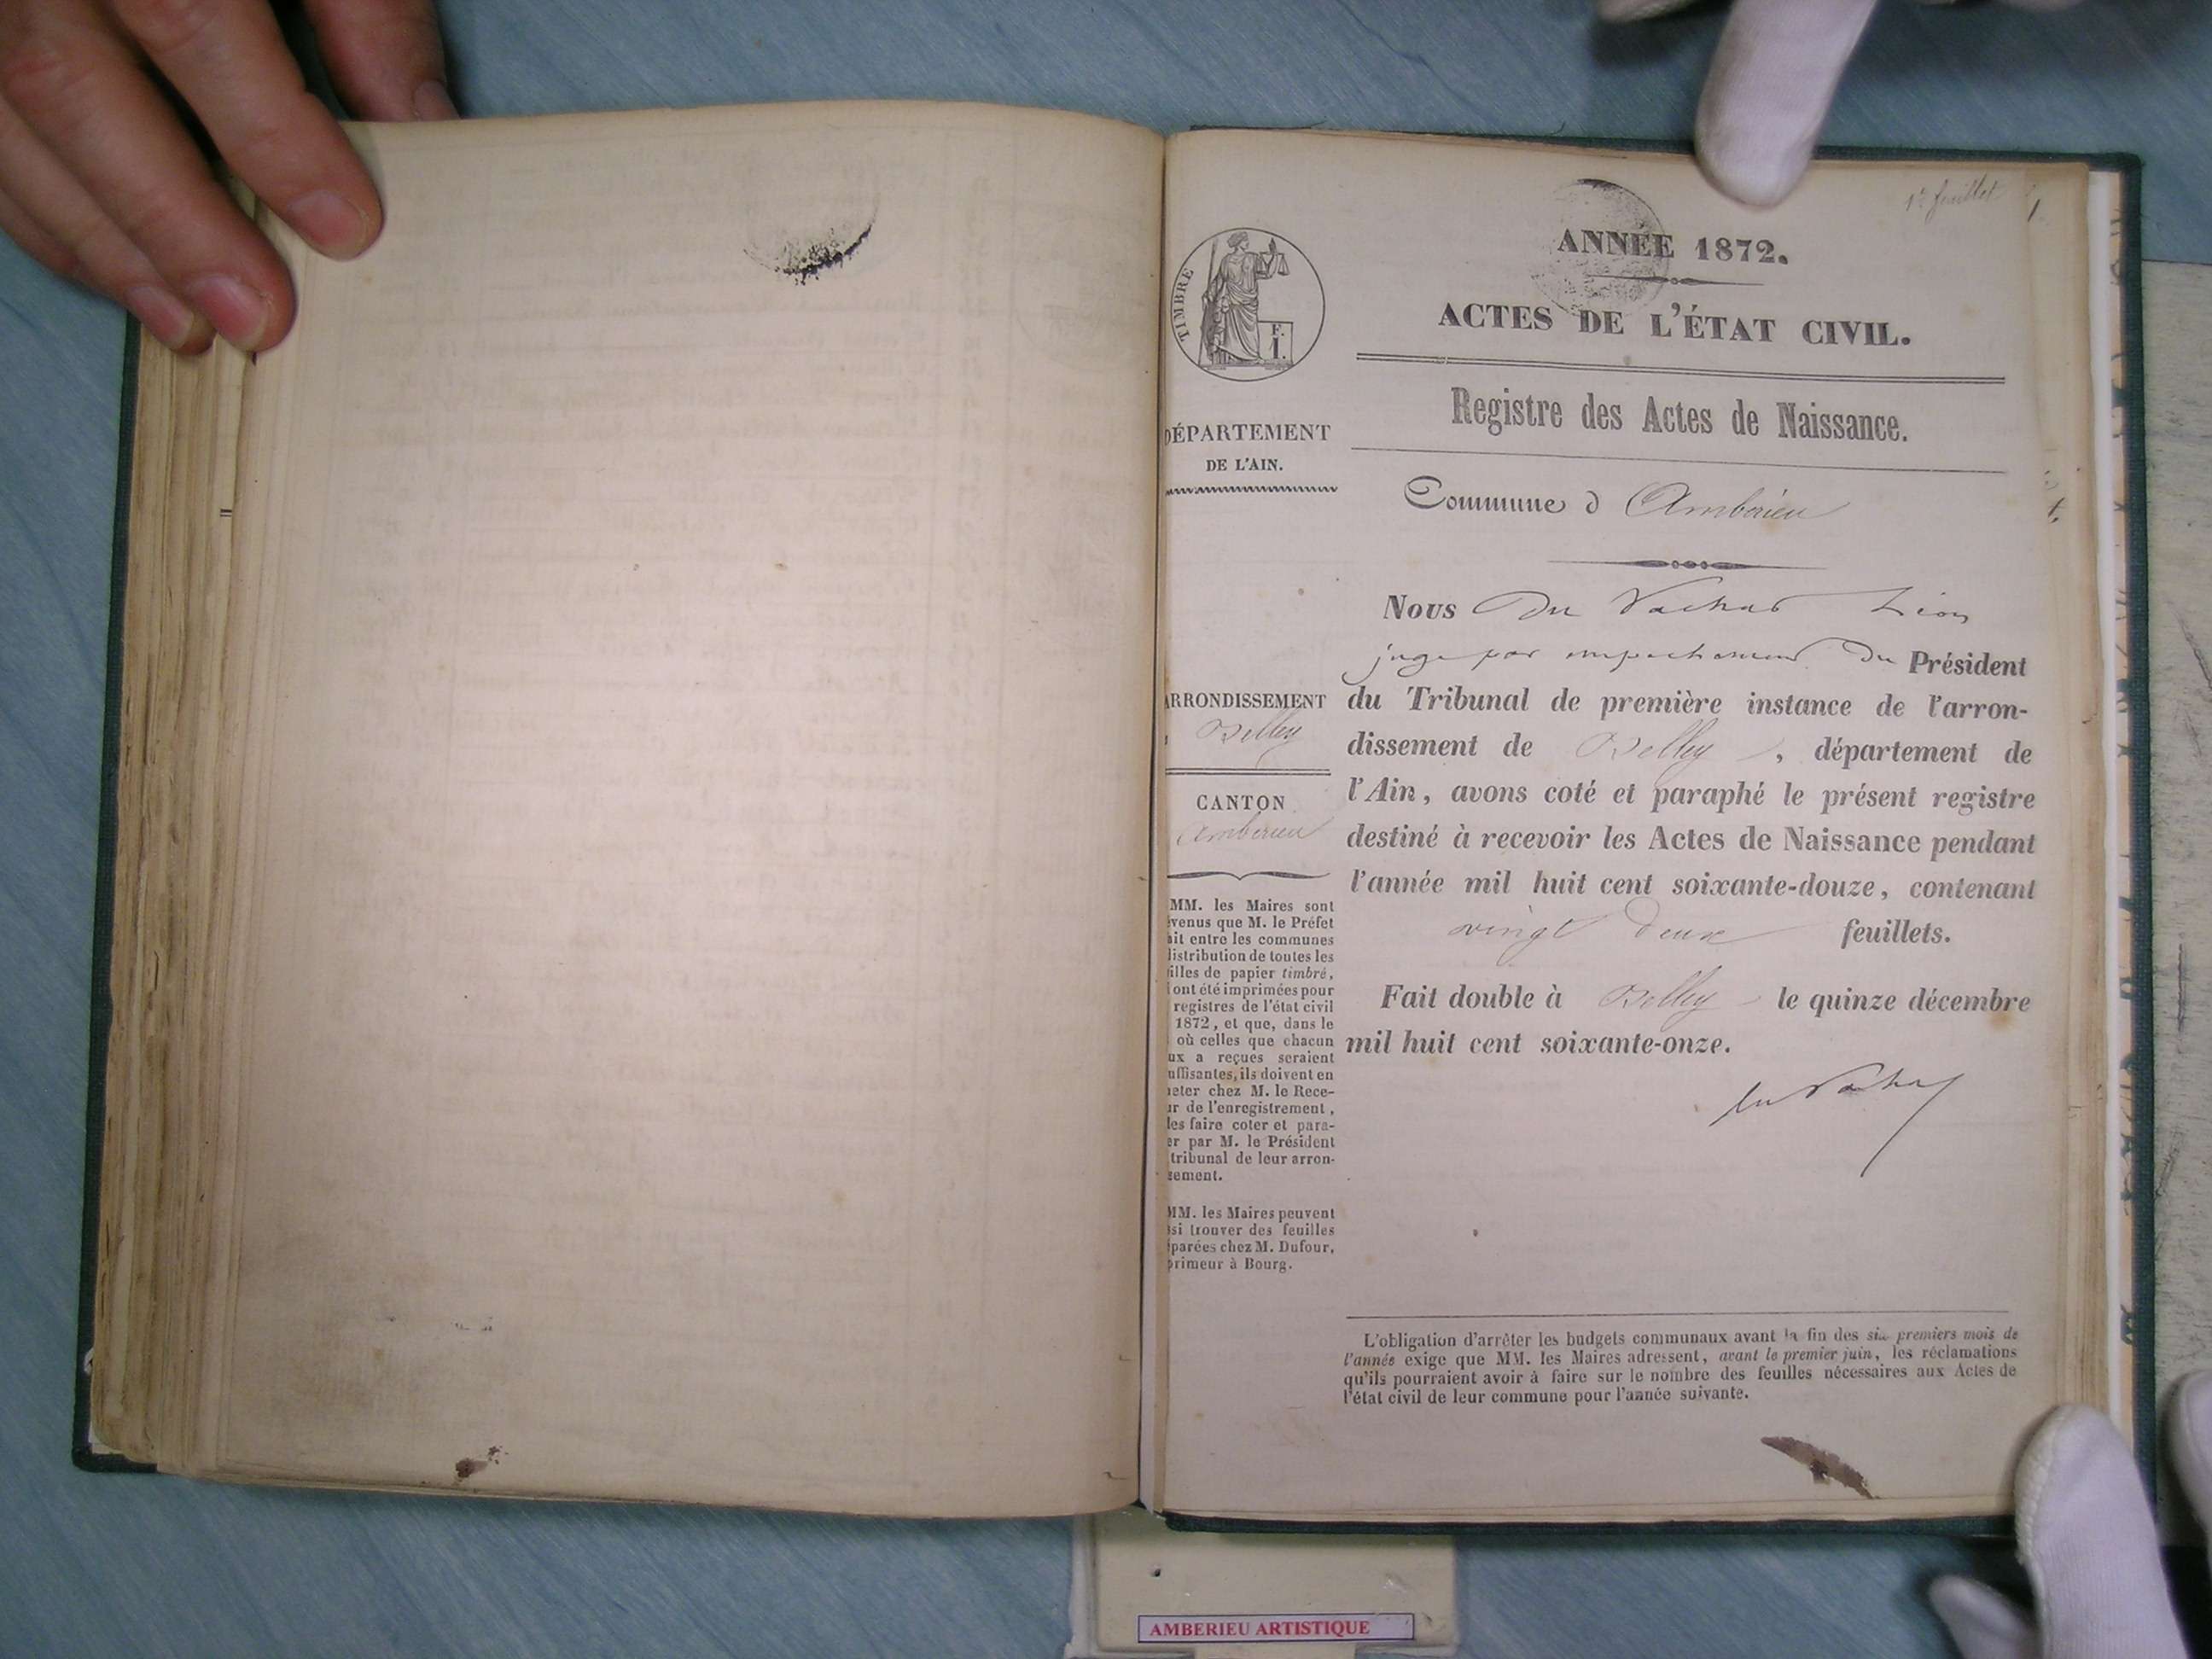 1er feuillet 1
ANNÉE 1872.
TIMBRE
F.
I.
ACTES DE L'ÉTAT CIVIL.
Registre des Actes de Naissance.
DÉPARTEMENT
DE L'AIN.
Commune d Ambérieu
Nous Du Vachat Léon
juge par empechement Du Président
ARRONDISSEMENT
Belley
du Tribunal de première instance de l'arron-
dissement de Belley, département de
l'Ain, avons coté et paraphé le présent registre
destiné à recevoir les Actes de Naissance pendant
l'année mil huit cent soixante-douze, contenant
vingt deux feuillets.
Fait double à Belley le quinze décembre
mil huit cent soixante-onze.
du Vachat
CANTON
Amberieu
MM. les Maires sont
venus que M. le Préfet
ait entre les communes
distribution de toutes les
illes de papier timbré,
ont été imprimées pour
registres de l'état civil
1872, et que, dans le
où celles que chacun
ux a reçues seraient
uffisantes, ils doivent en
eter chez M. le Rece-
ur de l'enregistrement,
les faire coter et para-
er par M. le Président
tribunal de leur arron-
sement.
MM. les Maires peuvent
si trouver des feuilles
parées chez M. Dufour,
primeur à Bourg.
L'obligation d'arrêter les budgets communaux avant la fin des six premiers mois de
l'année exige que MM. les Maires adressent, avant le premier juin, les réclamations
qu'ils pourraient avoir à faire sur le nombre des feuilles nécessaires aux Actes de
l'état civil de leur commune pour l'année suivante.
AMBERIEU ARTISTIQUE